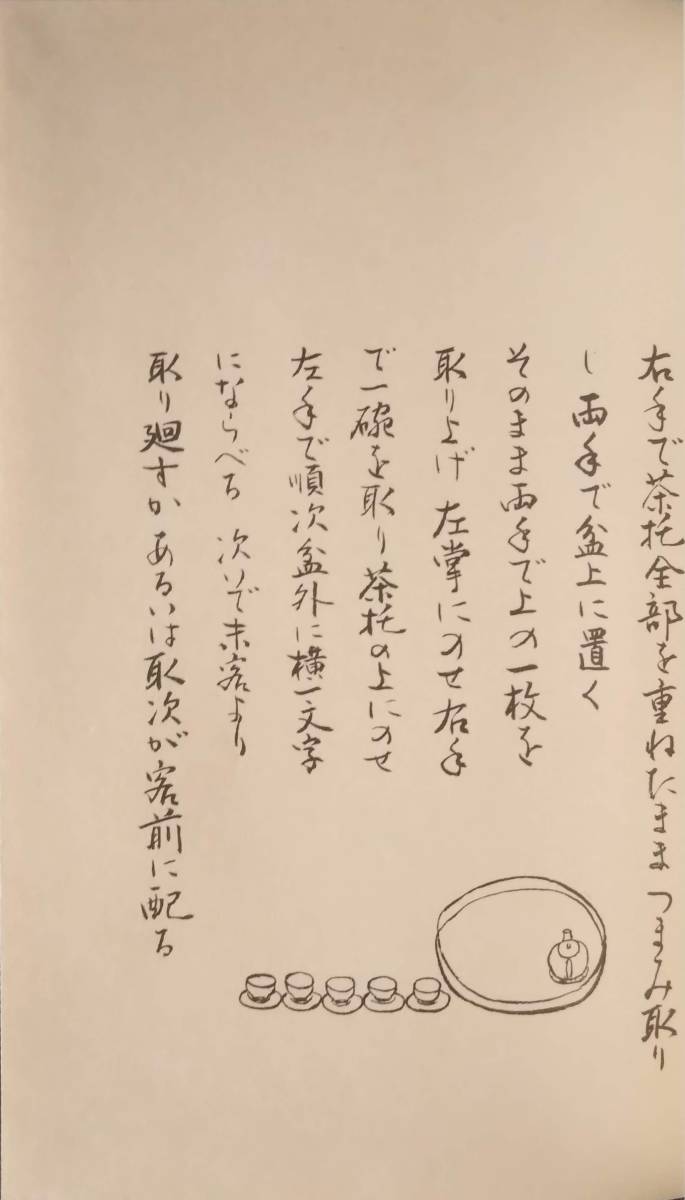 右手で茶托全部を重ねたまま つまみ取り
し 両手で盆上に置く
そのまま両手で上の一枚を
取り上げ 左掌にのせ右手
で一碗を取り茶托の上にのせ
左手で順次盆外に横一文字
にならべる 次いで末客より
取り廻すか あるいは取次が客前に配る